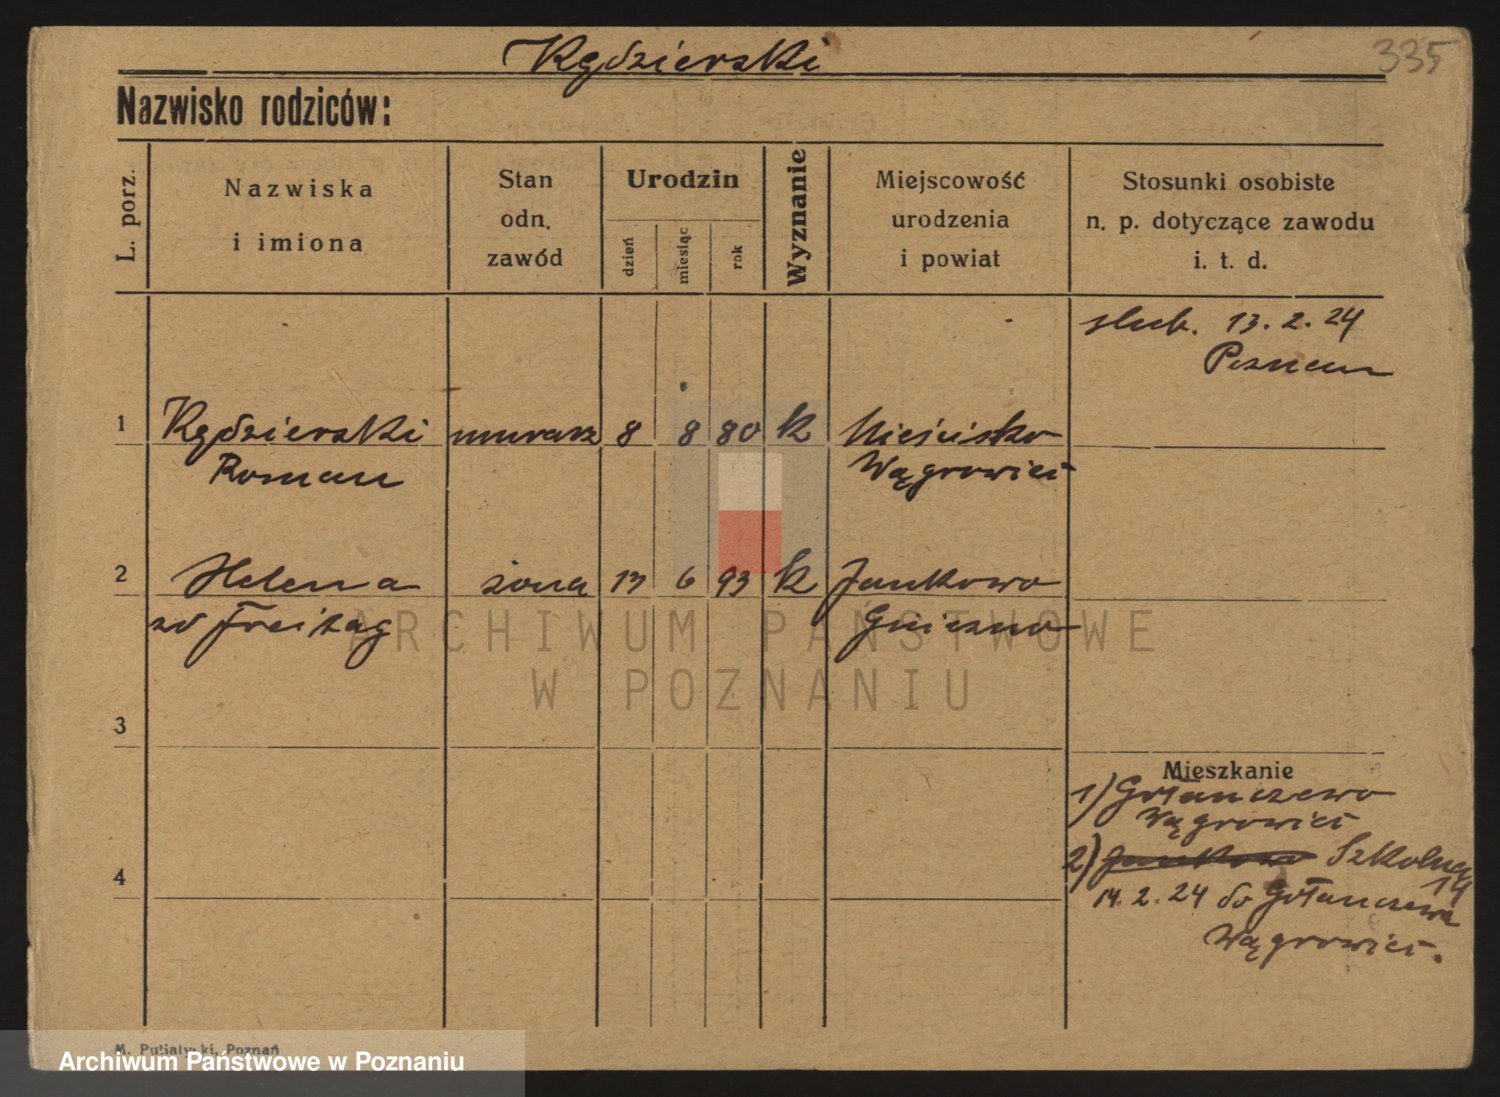 Kędzierski
335
Nazwisko rodziców:
L. porz.
Nazwiska
i imiona
Stan
odn.
zawód
Urodzin
dzień
miesiąc
rok
Wyznanie
Miejscowość
urodzenia
i powiat
Stosunki osobiste
n. p. dotyczące zawodu
i. t. d.
ślub. 13. 2. 24
Poznan
1 Kędzierski murarz 8 8 80 k Mieścisko
Roman Wągrowiec
2 Helena żona 13 6 93 k Jankowo
zd Freitag Gniezno
ARCHIWUM PAŃSTWOWE
W POZNANIU
3
Mieszkanie
1) Gołanczewo
Wągrowiec
2) Jankowo Szkolnej
14
4
14. 2. 24 do Gołanczewa
Wągrowiec.
M. Putiatycki, Poznań
Archiwum Państwowe w Poznaniu